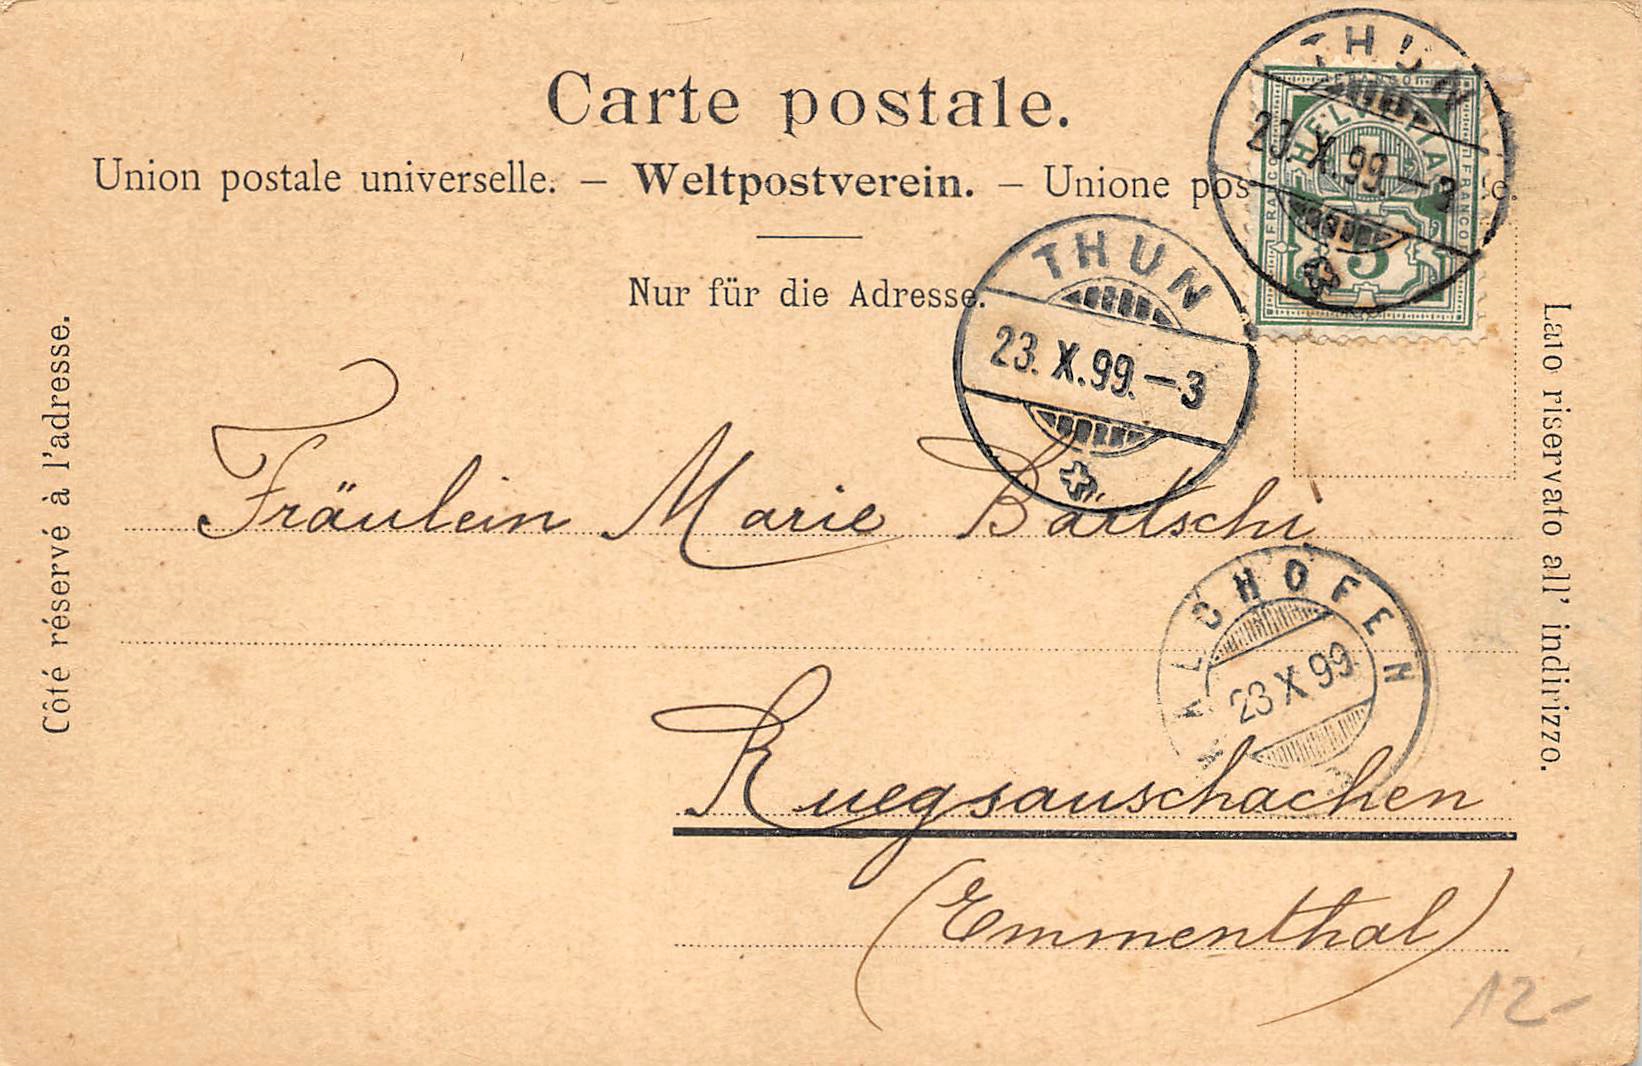 Carte postale.
Union postale universelle. – Weltpostverein. – Unione pos
Nur für die Adresse.
Côté réservé à l'adresse.
Lato riservato all' indirizzo.
THUN
23. X. 99. – 3
FRANCO
HELVETIA
FRANCO
FRANCO
5
THUN
23. X. 99. – 3
Fräulein Marie Bärtschi
KALCHOFEN
23 X 99
Ruegsauschachen
(Emmenthal)
12-